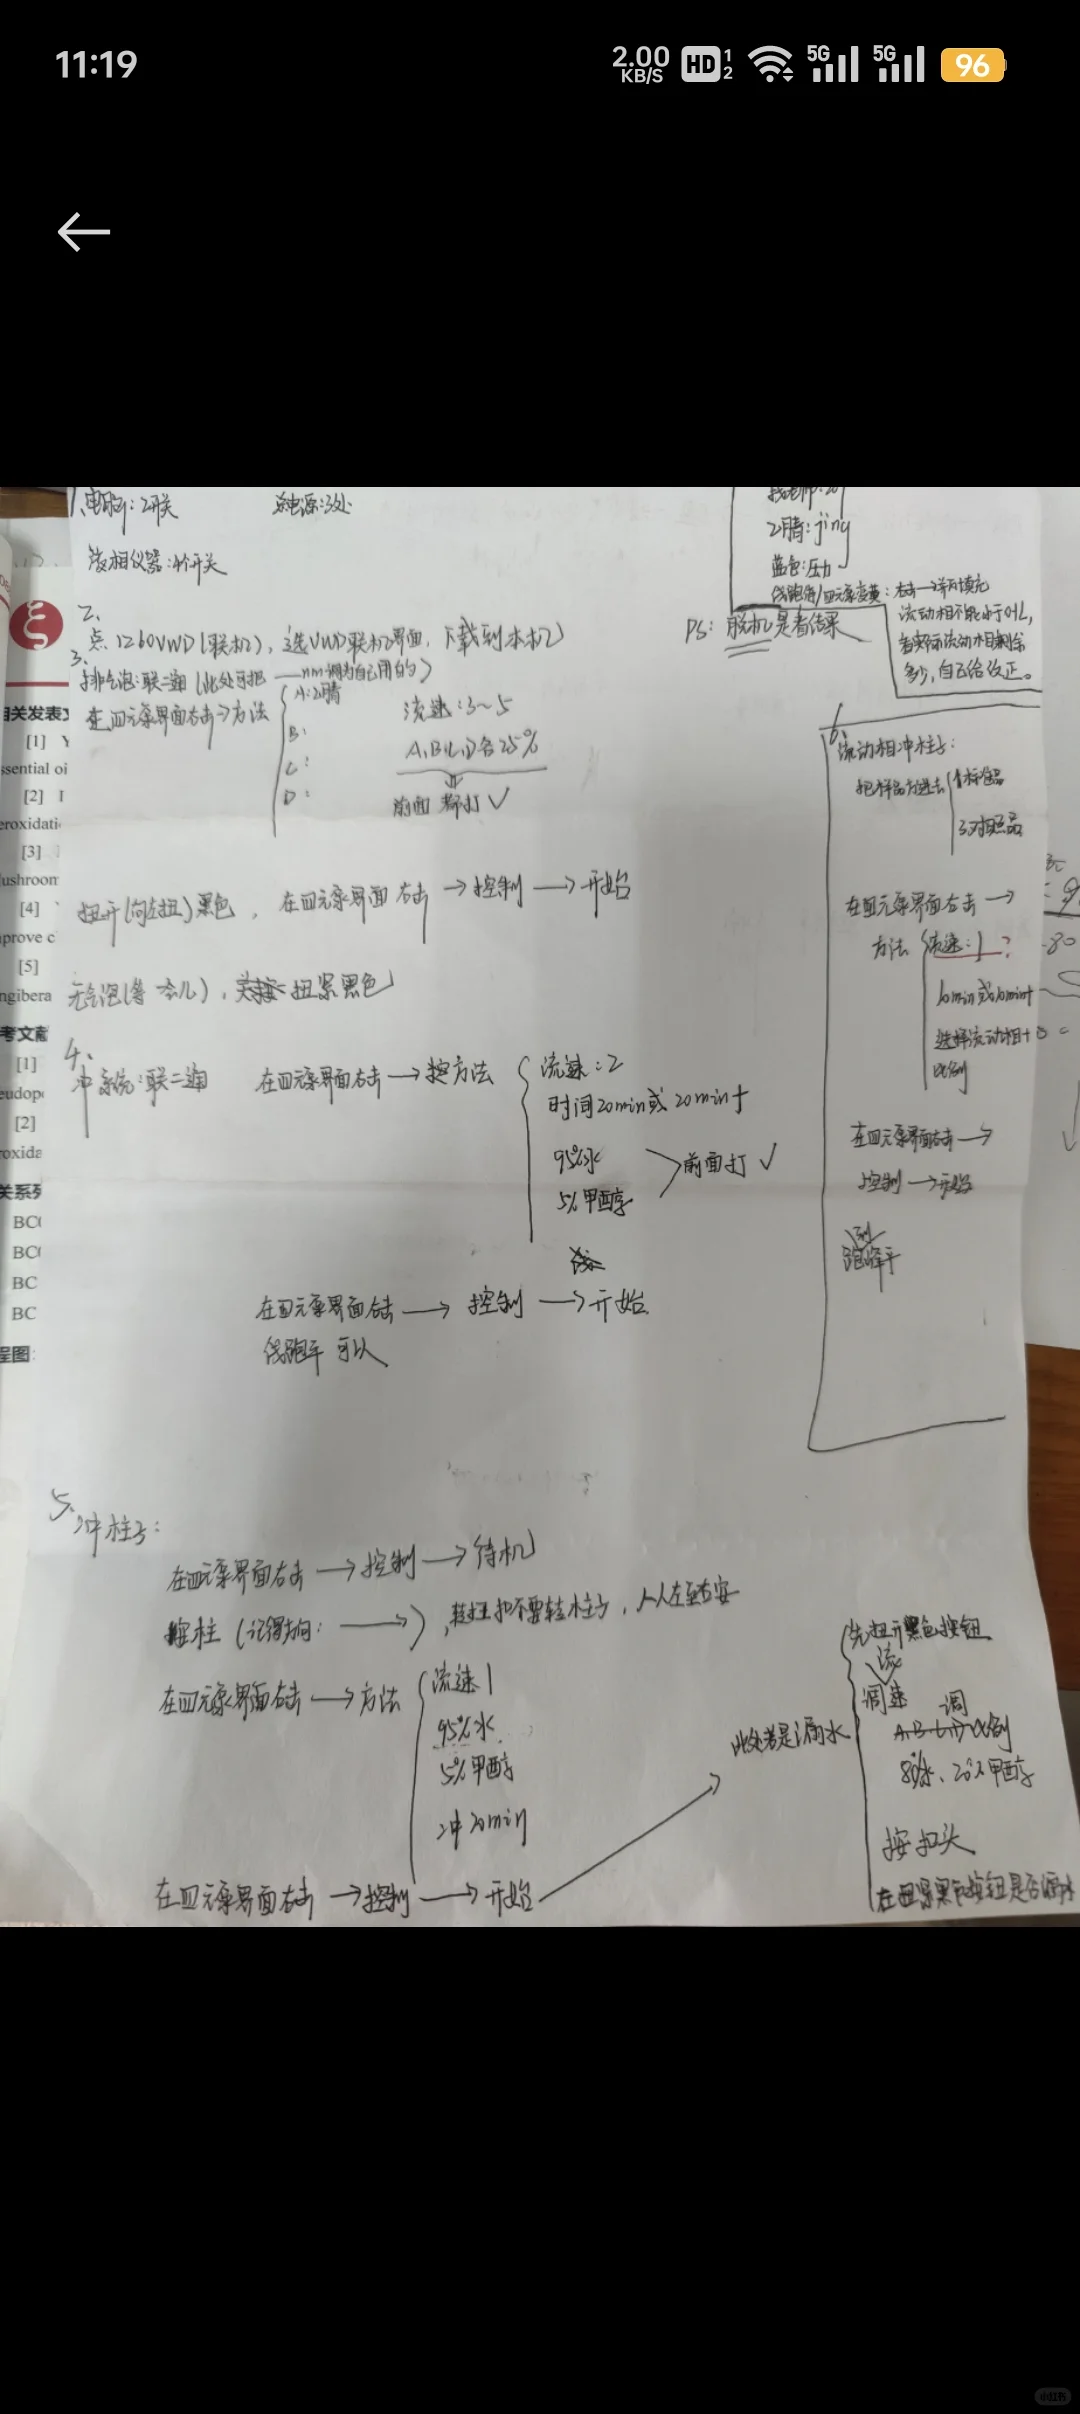 11:19
2.00 KB/S HD 1 2 5G 5G 96
1、电脑:2开关 总电源:3处
液相仪器:4个开关
2、
点1260VWD(联机),选VWD联机界面,下载到本机
3、
排气泡:联二通(此处可把——nm调为自己用的)
在四元泵界面右击→方法
A:乙腈
B:
C:
D:
流速:3~5
A、B、C、D各25%
前面都打✓
扭开(向左扭)黑色,在四元泵界面右击→控制→开始
无气泡(等一会儿),关 扭紧黑色
4、
冲系统:联二通 在四元泵界面右击→控方法
流速:2
时间20min或20min+
95%水
5%甲醇
前面打✓
在四元泵界面右击→控制→开始
线跑平可以
5、
冲柱子:
在四元泵界面右击→控制→待机
按柱(记得方向:→),扭扣不要转柱子,从左至右安
在四元泵界面右击→方法
流速1
95%水
5%甲醇
冲20min
在四元泵界面右击→控制→开始
此处若是漏水
先扭开黑色按钮
调流速
调A.B.C.D比例
80%水、20%甲醇
按扣头
在扭紧黑色按钮是否漏水
乙腈:jing
蓝色:压力
流动相不能小于0.1L,
看实际流动相剩余
多少,自己给改正。
PS:脱机是看结果
6、
流动相冲柱子:
把样品放进去
1标准品
3对照品
在四元泵界面右击→
方法
流速:1?
10min或10min+
选择流动相+
比例
在四元泵界面右击→
控制→开始
到
跑峰平
相关发表文
[1] Y
ssential oi
[2] I
eroxidati
[3]
ushroom
[4]
prove c
[5]
ngibera
考文献
[1]
eudop
[2]
roxida
关系列
BC
BC
BC
BC
程图:
小红书